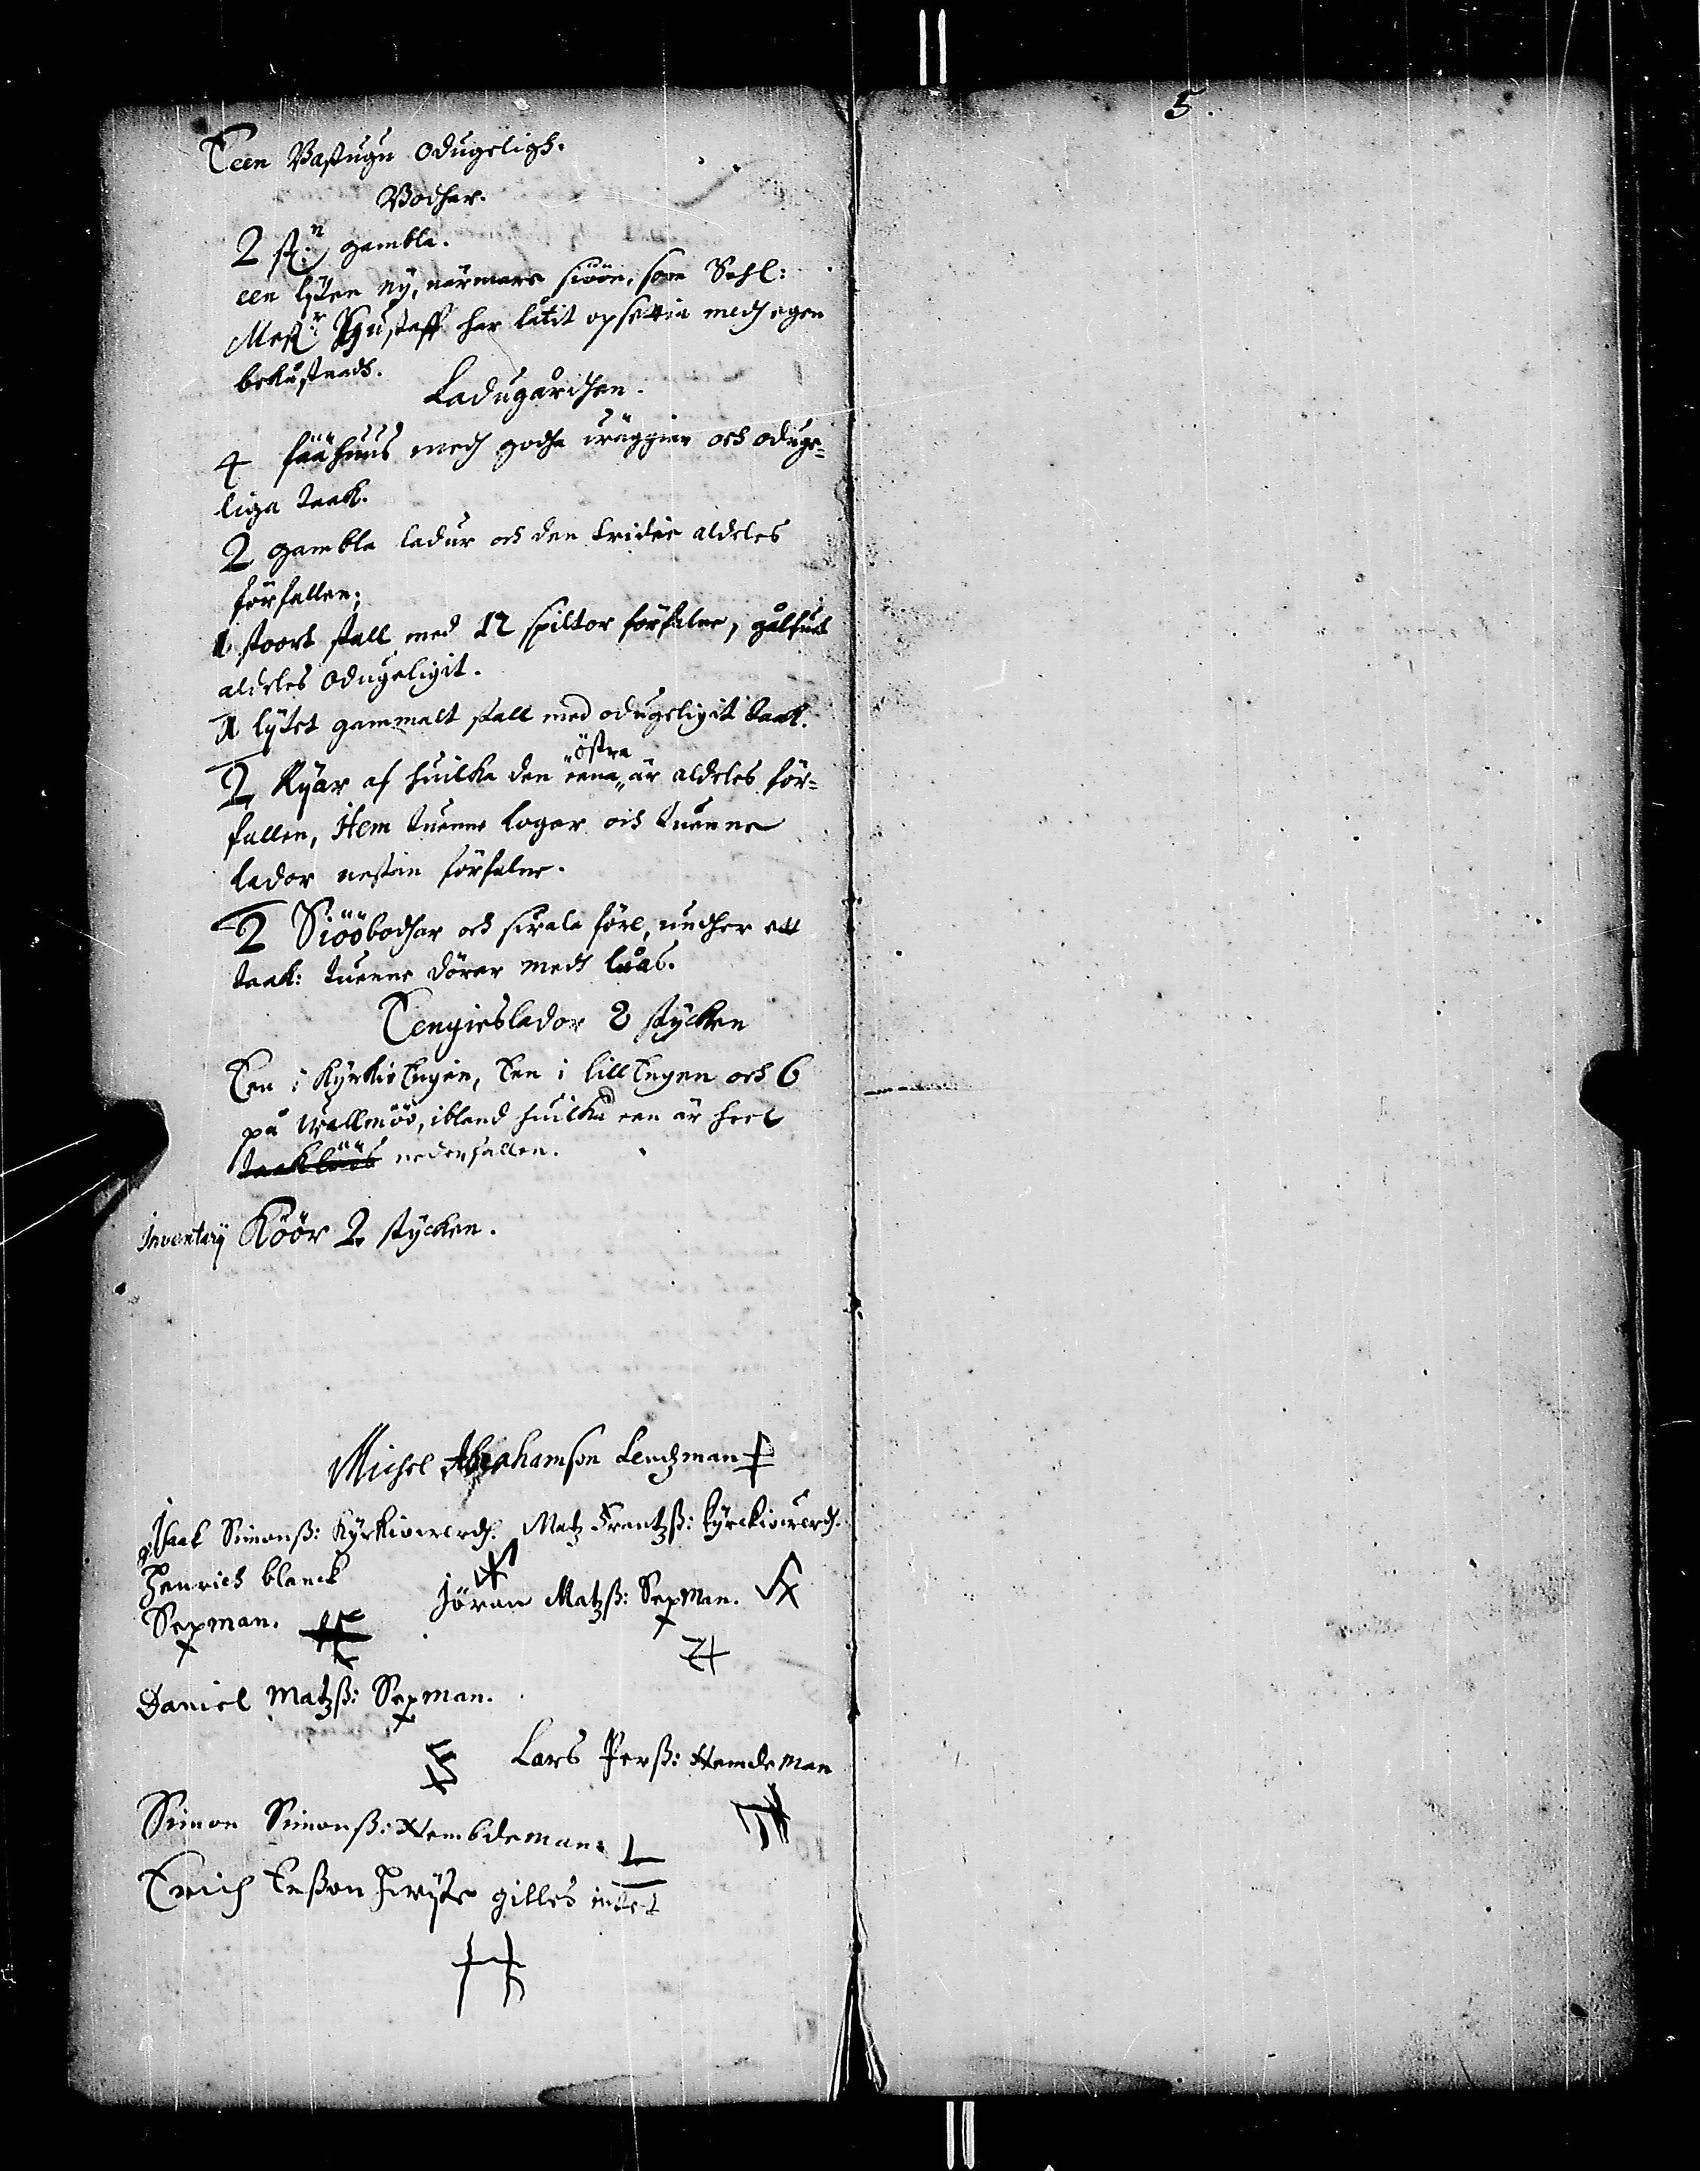 Een Bastugu odugeligh.
Bodher.
2 st:n gambla.
een lijten ny, närmare siöön, som Sahl:
Mest:r Gustaff har låtit opsettia medh egen
bekåstnadh.
Ladugårdhen.
4 fäähuus medh godha wäggiar och oduge-
liga taak.
2 gambla ladur och den tridie aldeles
förfallen;
1 stoort stall med 12 spiltor förfalne, gålfuet
aldeles odugeligit.
1 lijtet gammalt stall med odugeligit taak.
östra
2 Ryar af huilka den eena är aldeles för-
fallen, Item tuenne logar och tuenne
lador nestan förfalne.
2 Siööbodhar och skrale före, undher ett
taak: tuenne dörar medh låås.
Eengieslador 8 stycken
Een i Kyrkio Engen, Een i lill Engen och 6
på Wallmöö, ibland huilka een är heel
taaklöös nederfallen.
Inventarij Köör 2 stycken.
Michel Abrahamson Lendzman
Isaac Simonß: Kyrkiowerdh. Matz Frantzß: kyrckiowerdh.
Henrich blanck
Jöran Matzß: Sexman.
Sexman.
Daniel Matzß: Sexman.
Lars Perß: Nemdeman
Simon Simonß: Nembdeman.
Erich Eeßon gilles intet
5.